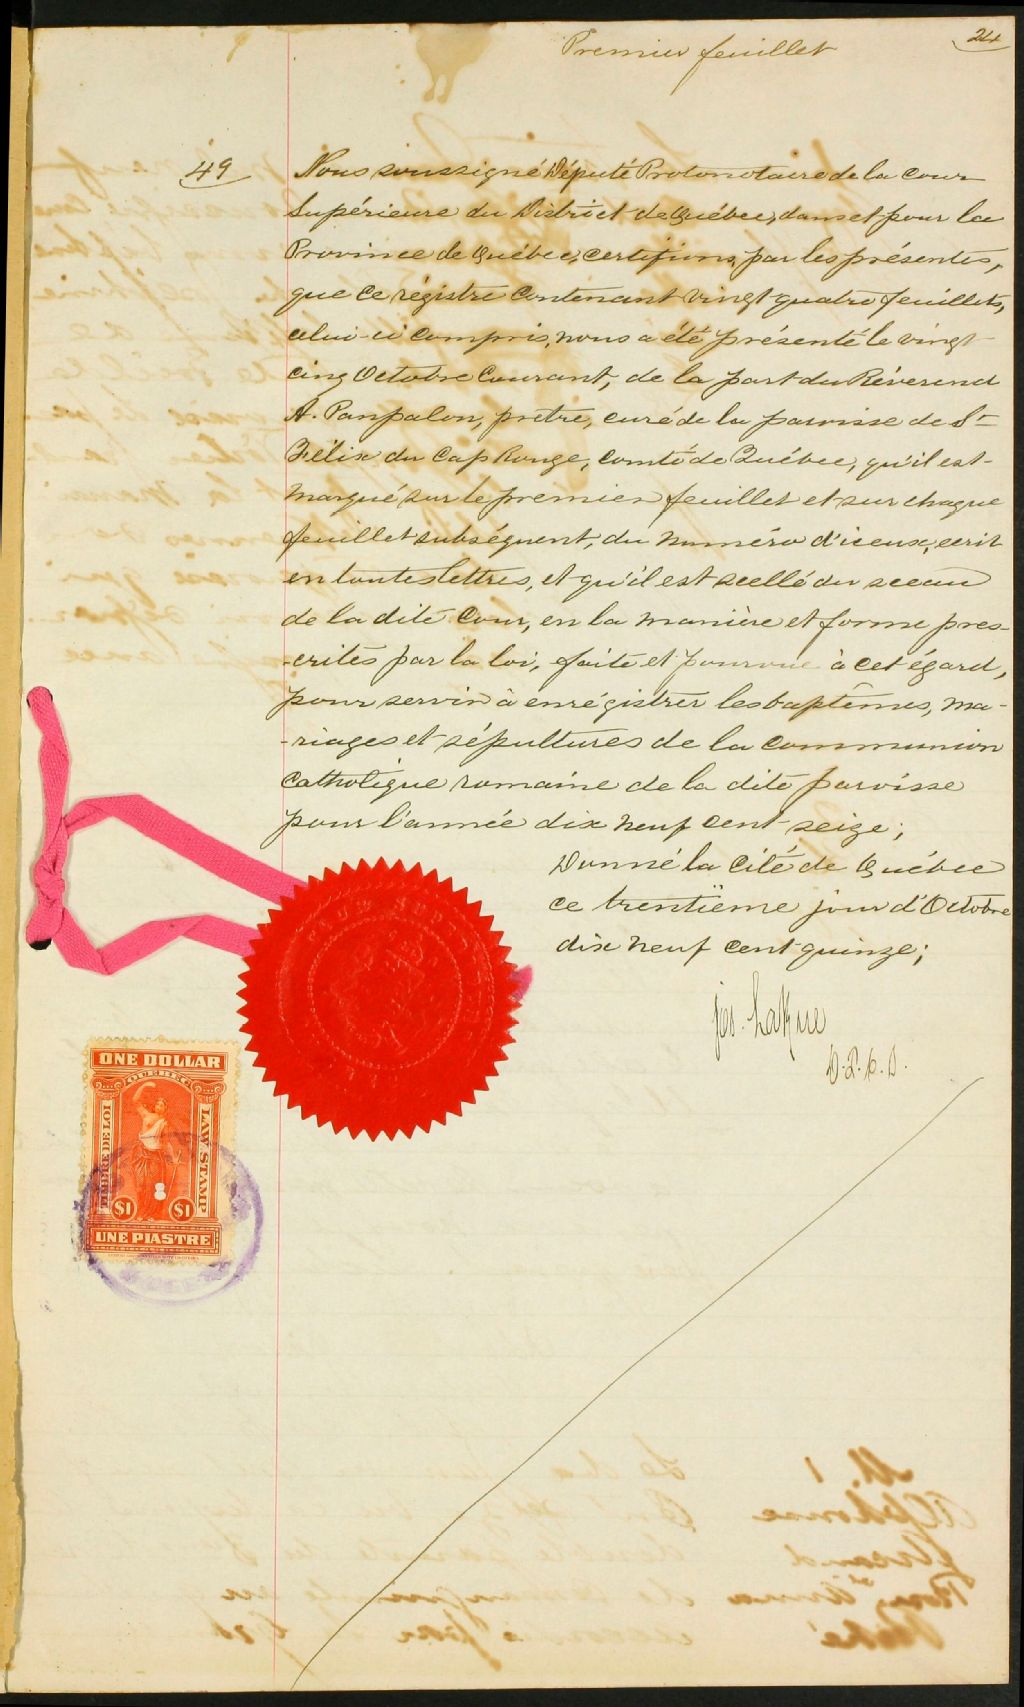 Premier feuillet
24
49
Nous soussigné Député Protonotaire de la Cour
Supérieure du District de Québec, dans et pour la
Province de Québec, certifions, par les présentes,
que ce régistre contenant vingt-quatre feuillets,
celui-ci compris, nous a été présenté le vingt
cinq Octobre Courant, de la part du Révérend
A. Panpalon, prêtre, curé de la paroisse de St
Félix du Cap Rouge, comté de Québec, qu'il est
marqué sur le premier feuillet et sur chaque
feuillet subséquent, du numéro d'iceux, ecrit
en toutes lettres, et qu'il est scellé du sceau
de la dite Cour, en la manière et forme pres-
-crites par la loi, faite et pourvue à cet égard,
pour servir à enrégistrer les baptêmes, ma-
-riages et sépultures de la communion
Catholique romaine de la dite paroisse
pour l'année dix neuf cent seize;
Donné la Cité de Québec
ce trentième jour d'Octobre
dix neuf cent quinze;
Jos. LaRue
D.P.C.S.
ONE DOLLAR
QUEBEC
TIMBRE DE LOI
LAW STAMP
$1
$1
UNE PIASTRE